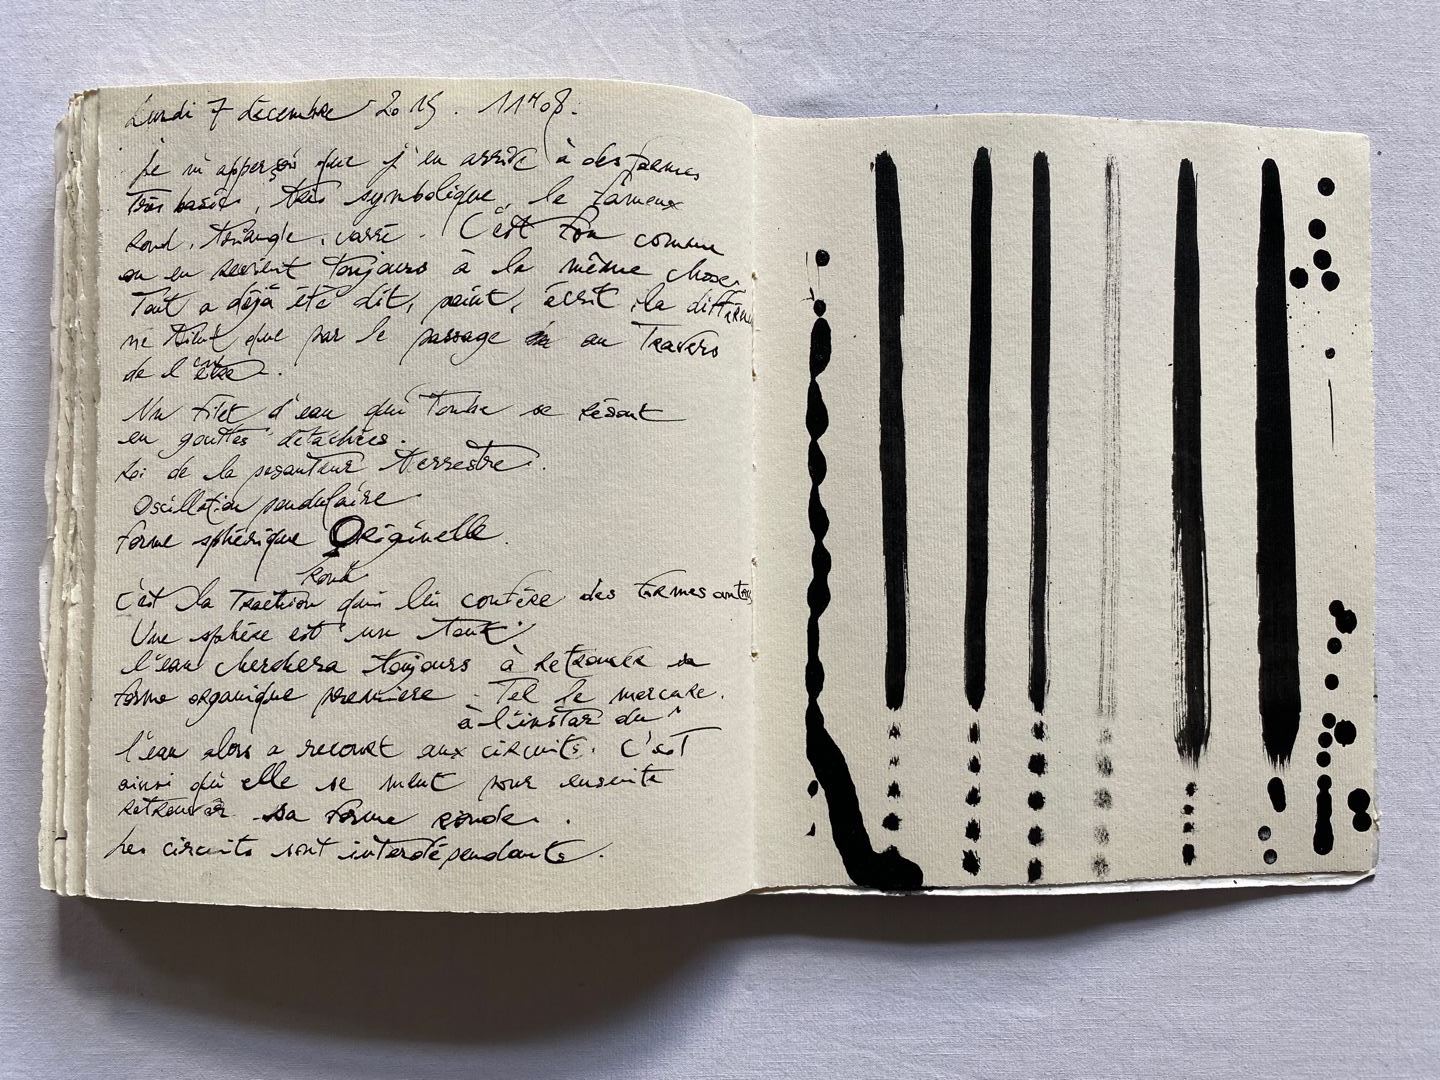 Lundi 7 décembre 2015. 11H08.
Je m'apperçois que j'en arrive à des formes
très basées, très symbolique, le fameux
rond, triangle, carré. C'est fou comme
on en revient toujours à la même chose.
Tout a déjà été dit, peint, écrit, la différence
ne tient que par le passage au travers
de l'être.
Un filet d'eau qui tombe se résout
en gouttes détachées.
Loi de la pesanteur terrestre.
Oscillation pendulaire
forme sphérique Originelle.
ronde
C'est la traction qui lui confère des formes autres
Une sphère est un tout.
l'eau cherchera toujours à retrouver sa
forme organique première - Tel le mercure.
à l'instar du
l'eau alors a recourt aux circuits. C'est
ainsi qu'elle se meut pour ensuite
retrouver sa forme ronde.
Les circuits sont interdépendants.